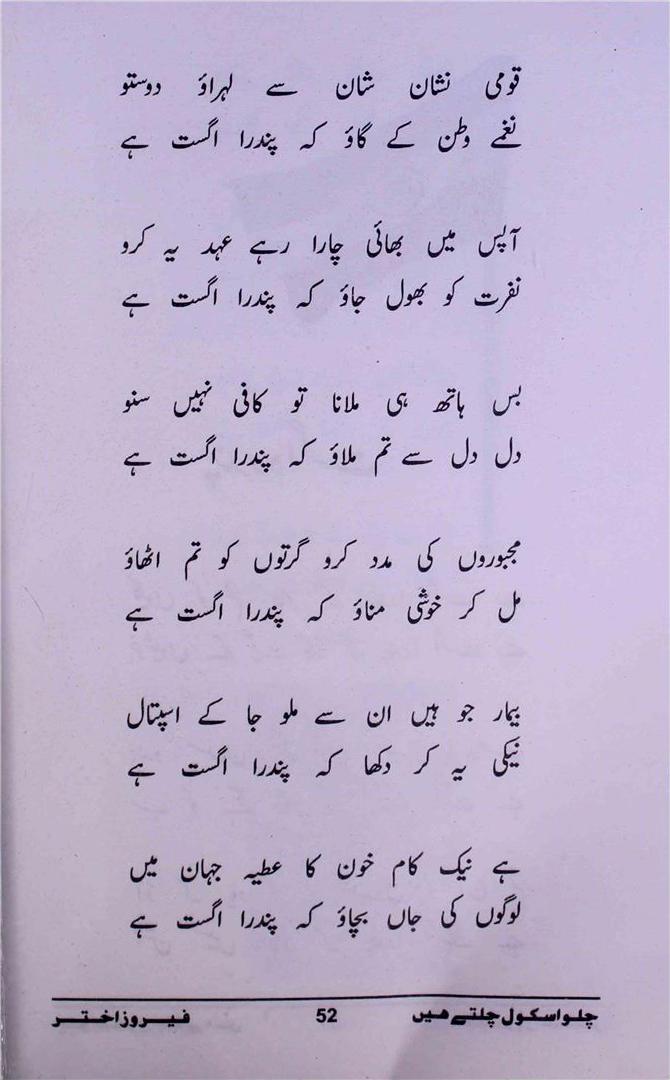 قومی نشان شان سے لہراؤ دوستو
نغمے وطن کے گاؤ کہ پندرا اگست ہے
آپس میں بھائی چارا رہے عہد یہ کرو
نفرت کو بھول جاؤ کہ پندرا اگست ہے
بس ہاتھ ہی ملانا تو کافی نہیں سنو
دل دل سے تم ملاؤ کہ پندرا اگست ہے
مجبوروں کی مدد کرو گرتوں کو تم اٹھاؤ
مل کر خوشی مناؤ کہ پندرا اگست ہے
بیمار جو ہیں ان سے ملو جا کے اسپتال
نیکی یہ کر دکھا کہ پندرا اگست ہے
ہے نیک کام خون کا عطیہ جہان میں
لوگوں کی جاں بچاؤ کہ پندرا اگست ہے
چلو اسکول چلتے ہیں 52 فیروز اختر